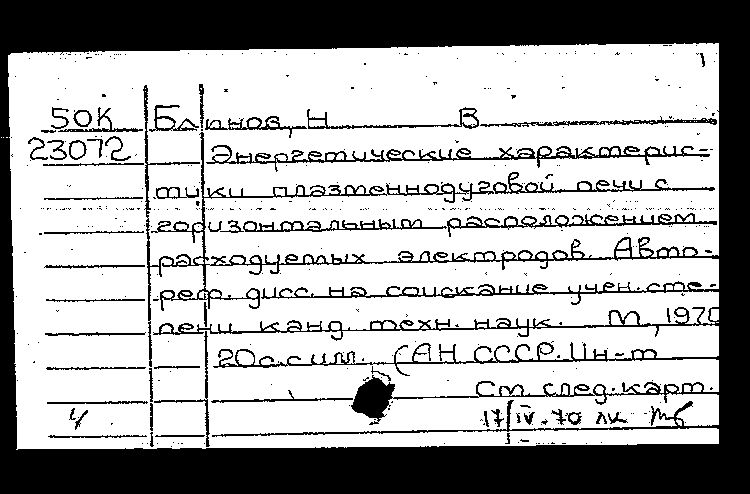 1
50К Блинов, Н В
23072 Энергетические характерис-
тики плазменнодуговой печи с
горизонтальным расположением
расходуемых электродов. Авто-
реф. дисс. на соискание учен. сте-
пени канд. техн. наук. М., 1970
20 с. с илл. (АН СССР. Ин-т
См. след. карт.
4 17/IV-70 лк